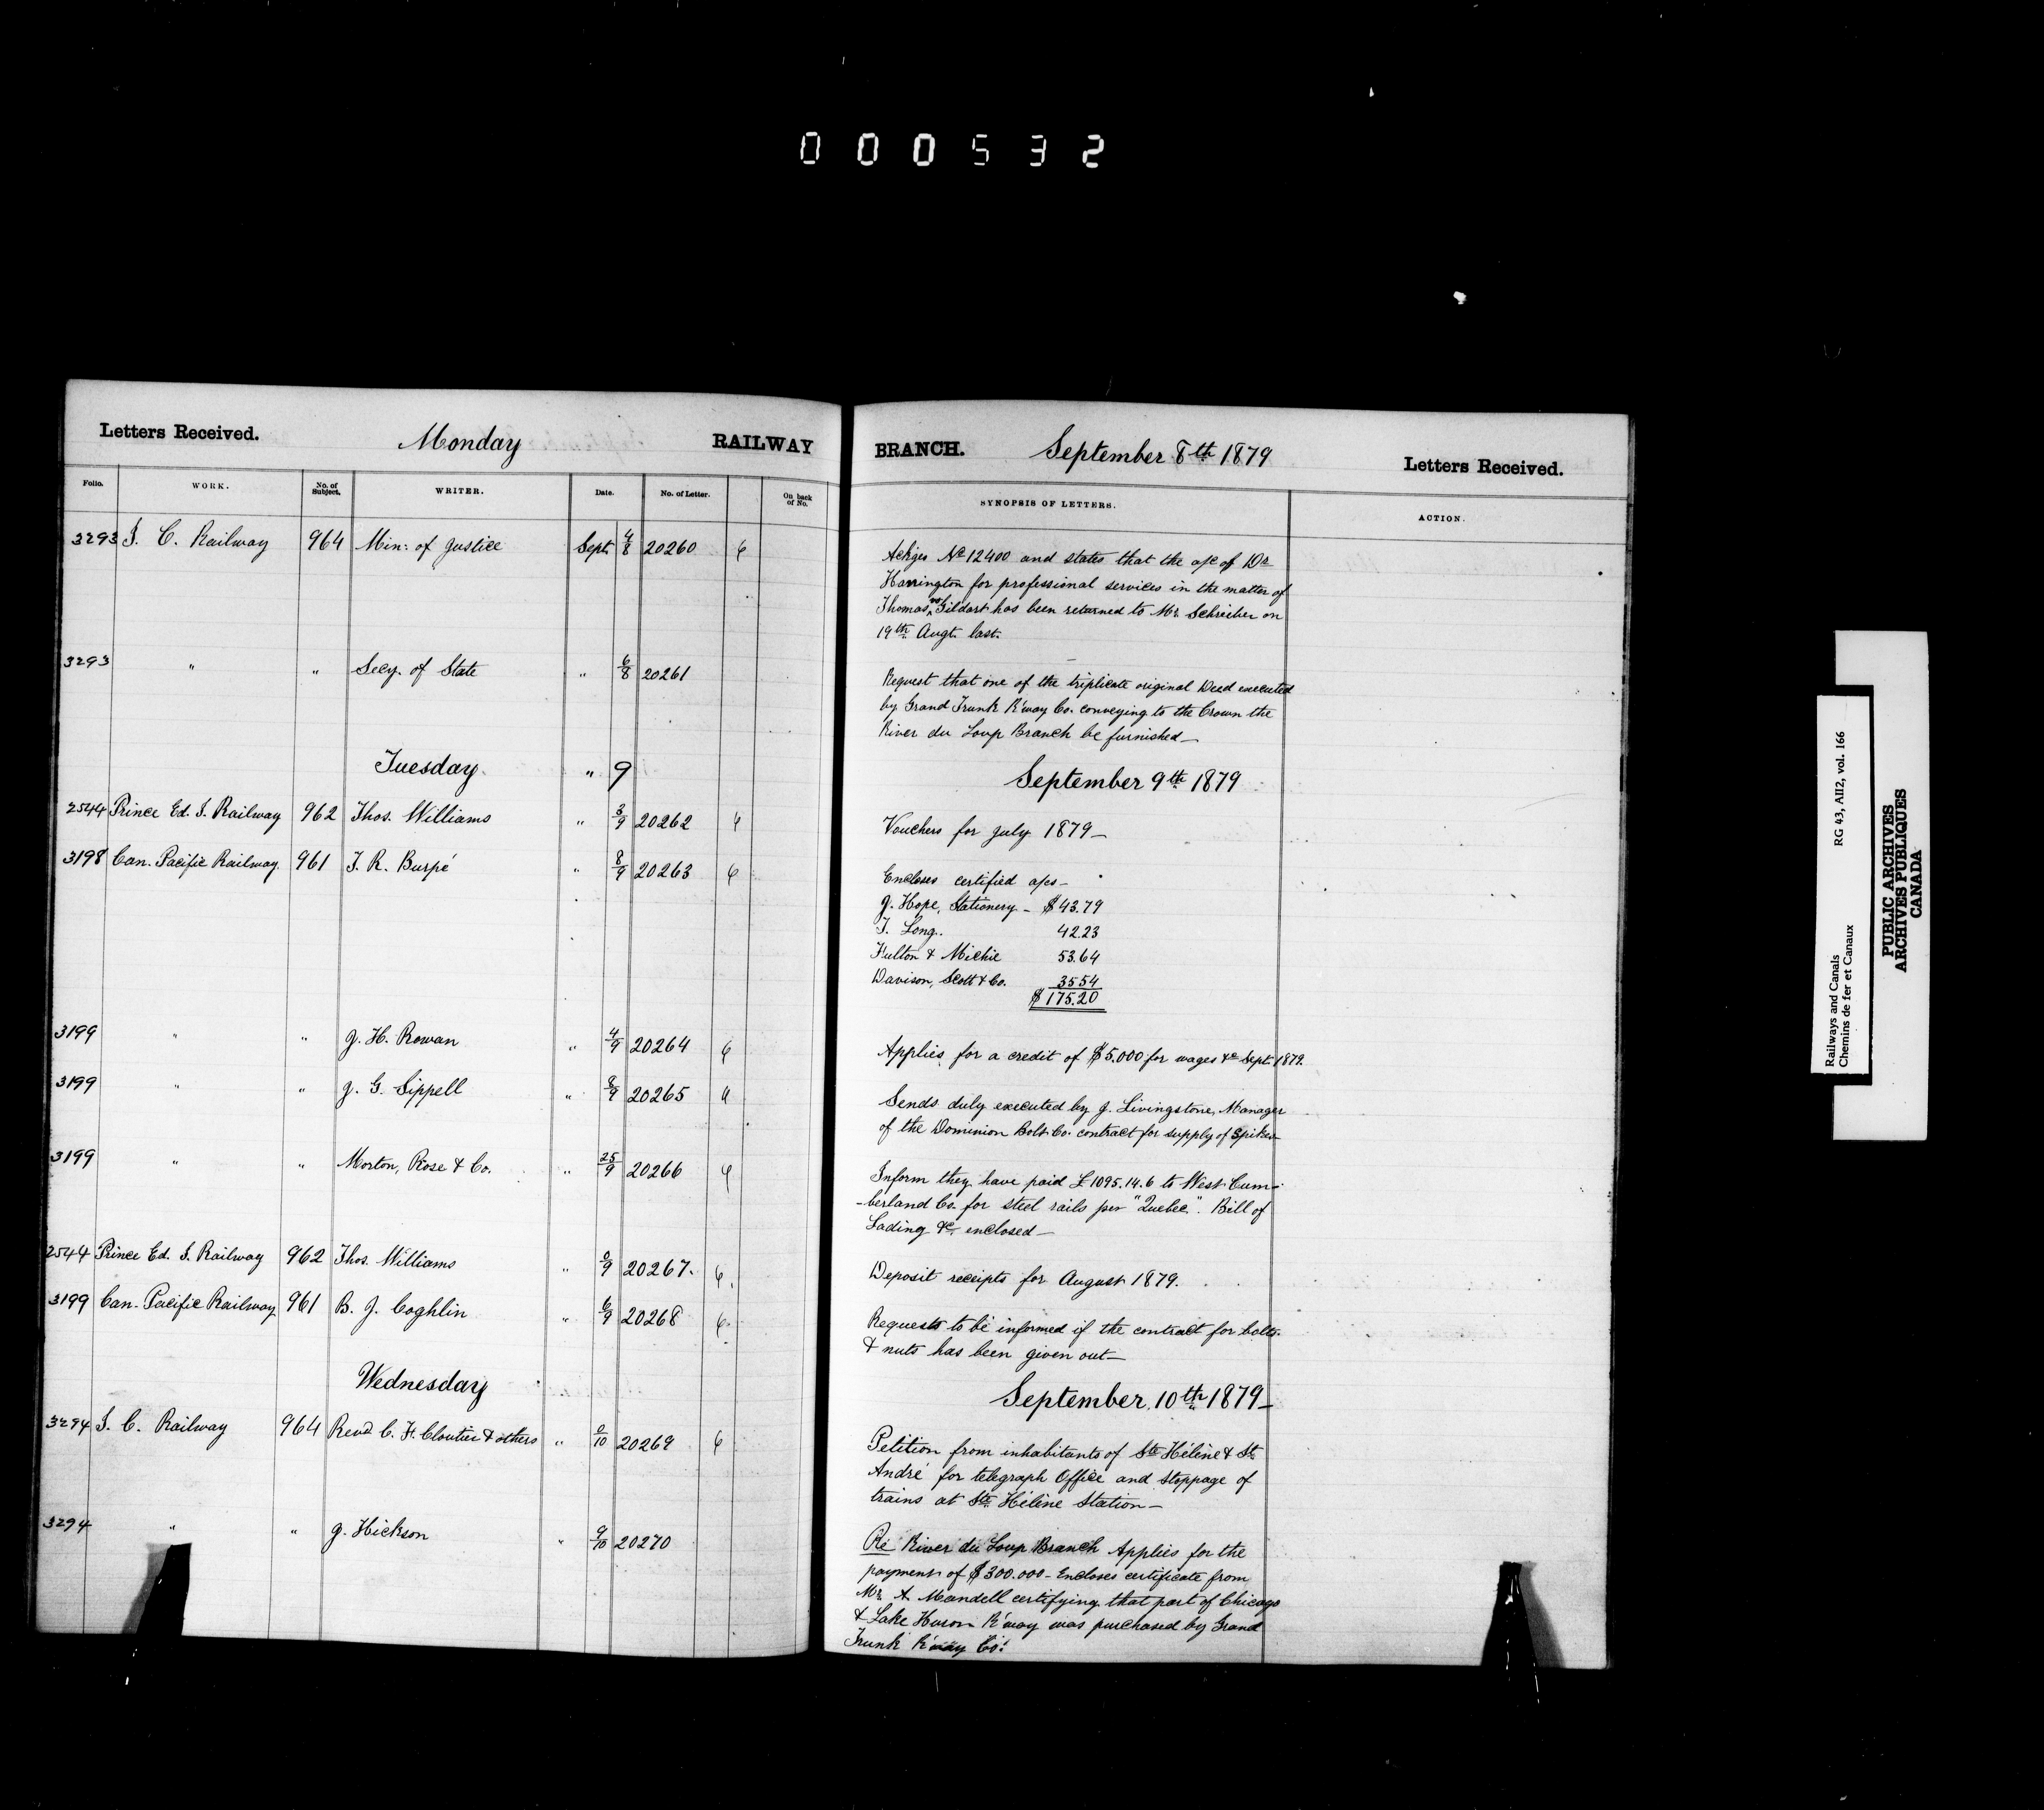 000532
Letters Received. Monday RAILWAY
Folio. WORK. No. of Subject. WRITER. Date. No. of Letter. On back of No.
3293 I. C. Railway 964 Min: of Justice Sept 4/8 20260
3293 " " Secy. of State " 6/8 20261
Tuesday. " 9
2544 Prince Ed. I. Railway 962 Thos. Williams " 3/9 20262
3198 Can. Pacific Railway. 961 T. R. Burpé " 8/9 20263
3199 " " J. H. Rowan " 4/9 20264
3199 " " J. G. Sippell " 8/9 20265
3199 " " Morton, Rose & Co. " 25/9 20266
2544 Prince Ed. I. Railway 962 Thos. Williams " 0/9 20267.
3199 Can. Pacific Railway 961 B. J. Coghlin " 6/9 20268
Wednesday
3294 I. C. Railway 964 Revd C. F. Cloutier & others " 0/10 20269
3294 " " J. Hickson " 9/10 20270
BRANCH. September 8th 1879 Letters Received.
SYNOPSIS OF LETTERS. ACTION.
Ackges No 12400 and states that the a/c of Dr
Harrington for professional services in the matter of
Thomas vs Gildart has been returned to Mr. Schreiber on
19th Augt. last.
Request that one of the triplicate original Deed executed
by Grand Trunk R'way Co. conveying to the Crown the
River du Loup Branch be furnished—
September 9th 1879
Vouchers for July 1879—
Encloses certified a/cs—
J. Hope, Stationery – $43.79
T. Long. 42.23
Fulton & Michie 53.64
Davison, Scott & Co. 35 54
$175.20
Applies for a credit of $5,000 for wages &c Sept. 1879.
Sends duly executed by J. Livingstone, Manager
of the Dominion Bolt Co. contract for supply of Spikes—
Inform they have paid £1095.14.6 to West Cum-
-berland Co. for steel rails per "Quebec". Bill of
Lading &c enclosed—
Deposit receipts for August 1879.
Requests to be informed if the contract for bolts
& nuts has been given out—
September 10th 1879—
Petition from inhabitants of Ste Hélène & St.
André for telegraph Office and stoppage of
trains at Ste. Hélène Station—
Re River du Loup Branch Applies for the
payment of $300.000 – Encloses certificate from
Mr. A. Mandell certifying that part of Chicago
& Lake Huron R'way was purchased by Grand
Trunk R'way Co.
Railways and Canals RG 43, AII2, vol. 166
Chemins de fer et Canaux
PUBLIC ARCHIVES
ARCHIVES PUBLIQUES
CANADA